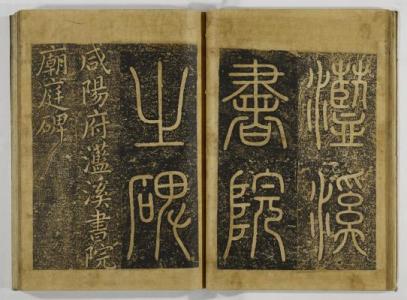 灆溪
書院
之碑
咸陽府灆溪書院
廟庭碑